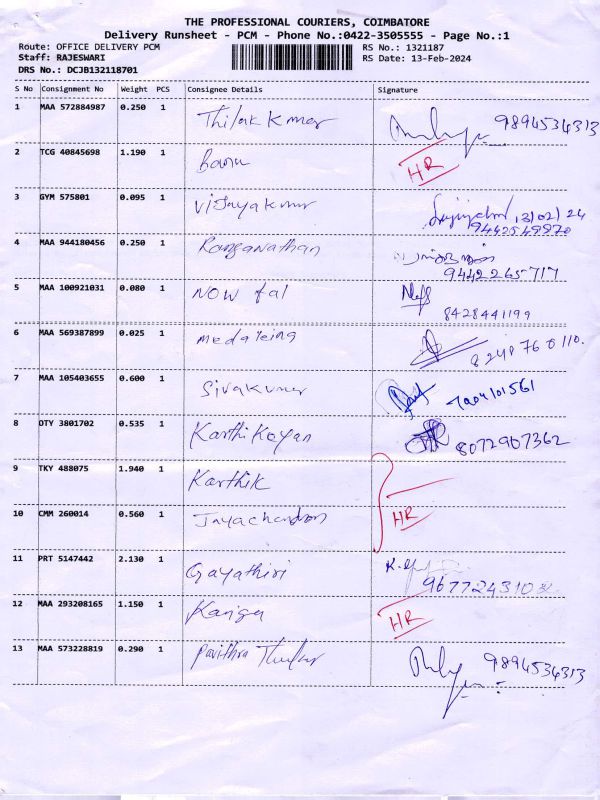 THE PROFESSIONAL COURIERS, COIMBATORE
Delivery Runsheet - PCM - Phone No.:0422-3505555 - Page No.:1
Route: OFFICE DELIVERY PCM RS No.: 1321187
Staff: RAJESWARI RS Date: 13-Feb-2024
DRS No.: DCJB132118701
S No Consignment No Weight PCS Consignee Details Signature
1 MAA 572884987 0.250 1 Thilak Kumar 9894534313
2 TCG 40845698 1.190 1 Banu HR
3 GYM 575801 0.095 1 Vijayakumar 13/02/24
9442549870
4 MAA 944180456 0.250 1 Ranganathan
9442265717
5 MAA 100921031 0.080 1 NOW fal
8428441199
6 MAA 569387899 0.025 1
8248760110.
7 MAA 105403655 0.600 1 Sivakumar
8 OTY 3801702 0.535 1 Karthikayan 8072907362
9 TKY 488075 1.940 1 Karthik
10 CMM 260014 0.560 1 Jayachandran HR
11 PRT 5147442 2.130 1 Gayathiri
12 MAA 293208165 1.150 1 Kanga HR
13 MAA 573228819 0.290 1 Pavithra 9894534313